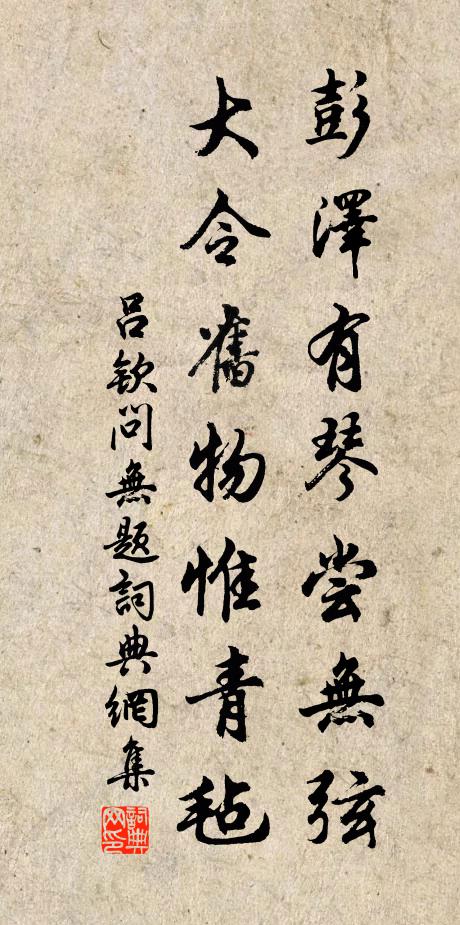 彭澤有琴尝無弦
大令舊物惟青毡
吕欽問無题詞典網集
詞典网印